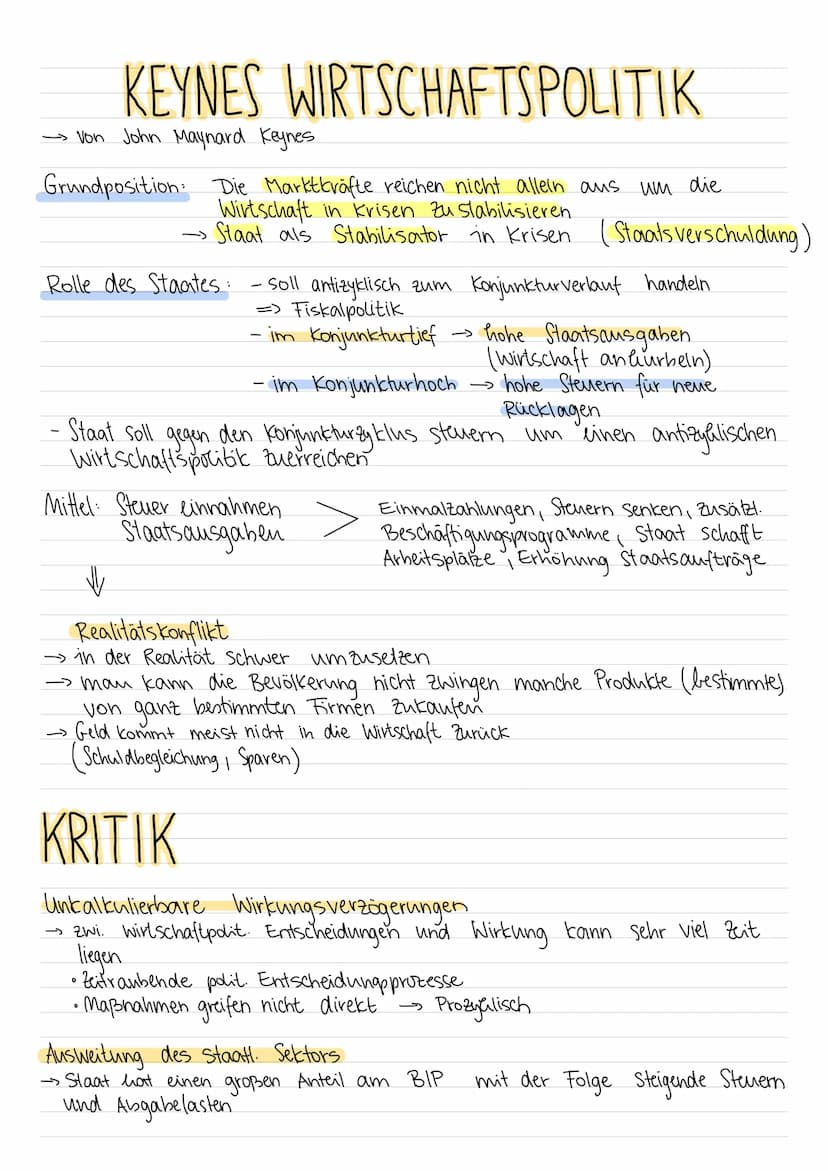 KEYNES WIRTSCHAFTSPOLITIK
→ von John Maynard Keynes
Grundposition: Die Marktkräfte reichen nicht allein aus um die
Wirtschaft in Krisen zu stabilisieren
→ Staat als Stabilisator in Krisen (Staatsverschuldung)
Rolle des Staates: - soll antizyklisch zum Konjunkturverlauf handeln
=> Fiskalpolitik
- im Konjunkturtief → hohe Staatsausgaben
(Wirtschaft ankurbeln)
- im Konjunkturhoch → hohe Steuern für neue
Rücklagen
- Staat soll gegen den Konjunkturzyklus steuern um einen antizyklischen
Wirtschaftspolitik zuerreichen
Mittel: Steuer einnahmen > Einmalzahlungen, Steuern senken, zusätzl.
Staatsausgaben Beschäftigungsprogramme, Staat schafft
Arbeitsplätze, Erhöhung Staatsaufträge
⇓
Realitätskonflikt
→ in der Realität schwer umzusetzen
→ man kann die Bevölkerung nicht zwingen manche Produkte (bestimmte)
von ganz bestimmten Firmen zukaufen
→ Geld kommt meist nicht in die Wirtschaft zurück
(Schuldbegleichung, Sparen)
KRITIK
Unkalkulierbare Wirkungsverzögerungen
→ zwi. wirtschaftpolit. Entscheidungen und Wirkung kann sehr viel Zeit
liegen
• Zeitraubende polit. Entscheidungprozesse
• Maßnahmen greifen nicht direkt → Prozyklisch
Ausweitung des staatl. Sektors
→ Staat hat einen großen Anteil am BIP mit der Folge steigende Steuern
und Abgabelasten